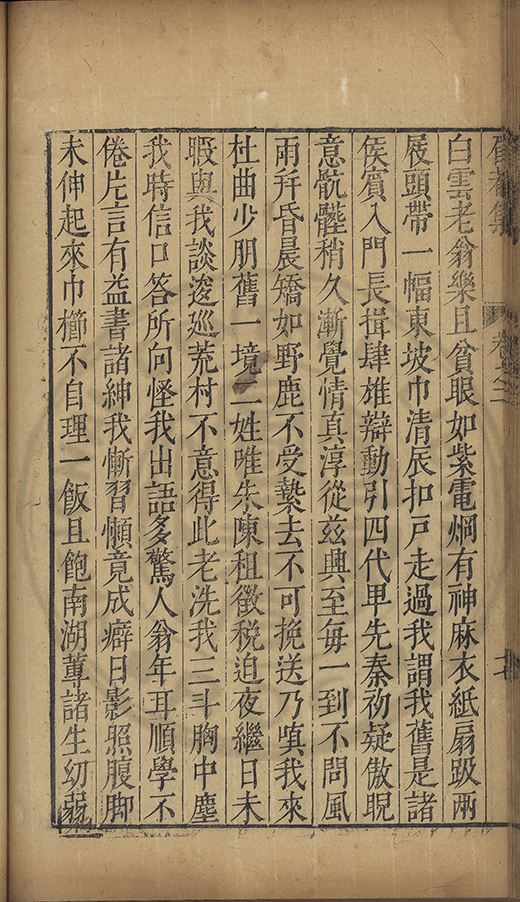 集 卷之二
白雲老翁樂且貧眼如紫電烱有神麻衣紙扇趿兩
屐頭帶一幅東坡巾清辰扣戸走過我謂我舊是諸
侯賓入門長揖肆雄辯動引四代卑先秦初疑傲睨
意骯髒稍久漸覺情真淳從兹興至毎一到不問風
雨并昏晨矯如野鹿不受縶去不可挽送乃嗔我來
杜曲少朋舊一境二姓唯朱陳租徵税迫夜繼日未
暇與我談逡巡荒村不意得此老洗我三斗胸中塵
我時信口答所向怪我出語多驚人翁年耳順學不
倦片言有益書諸紳我慚習懶竟成癖日影照腹脚
未伸起來巾櫛不自理一飯且飽南湖蓴諸生幼弱